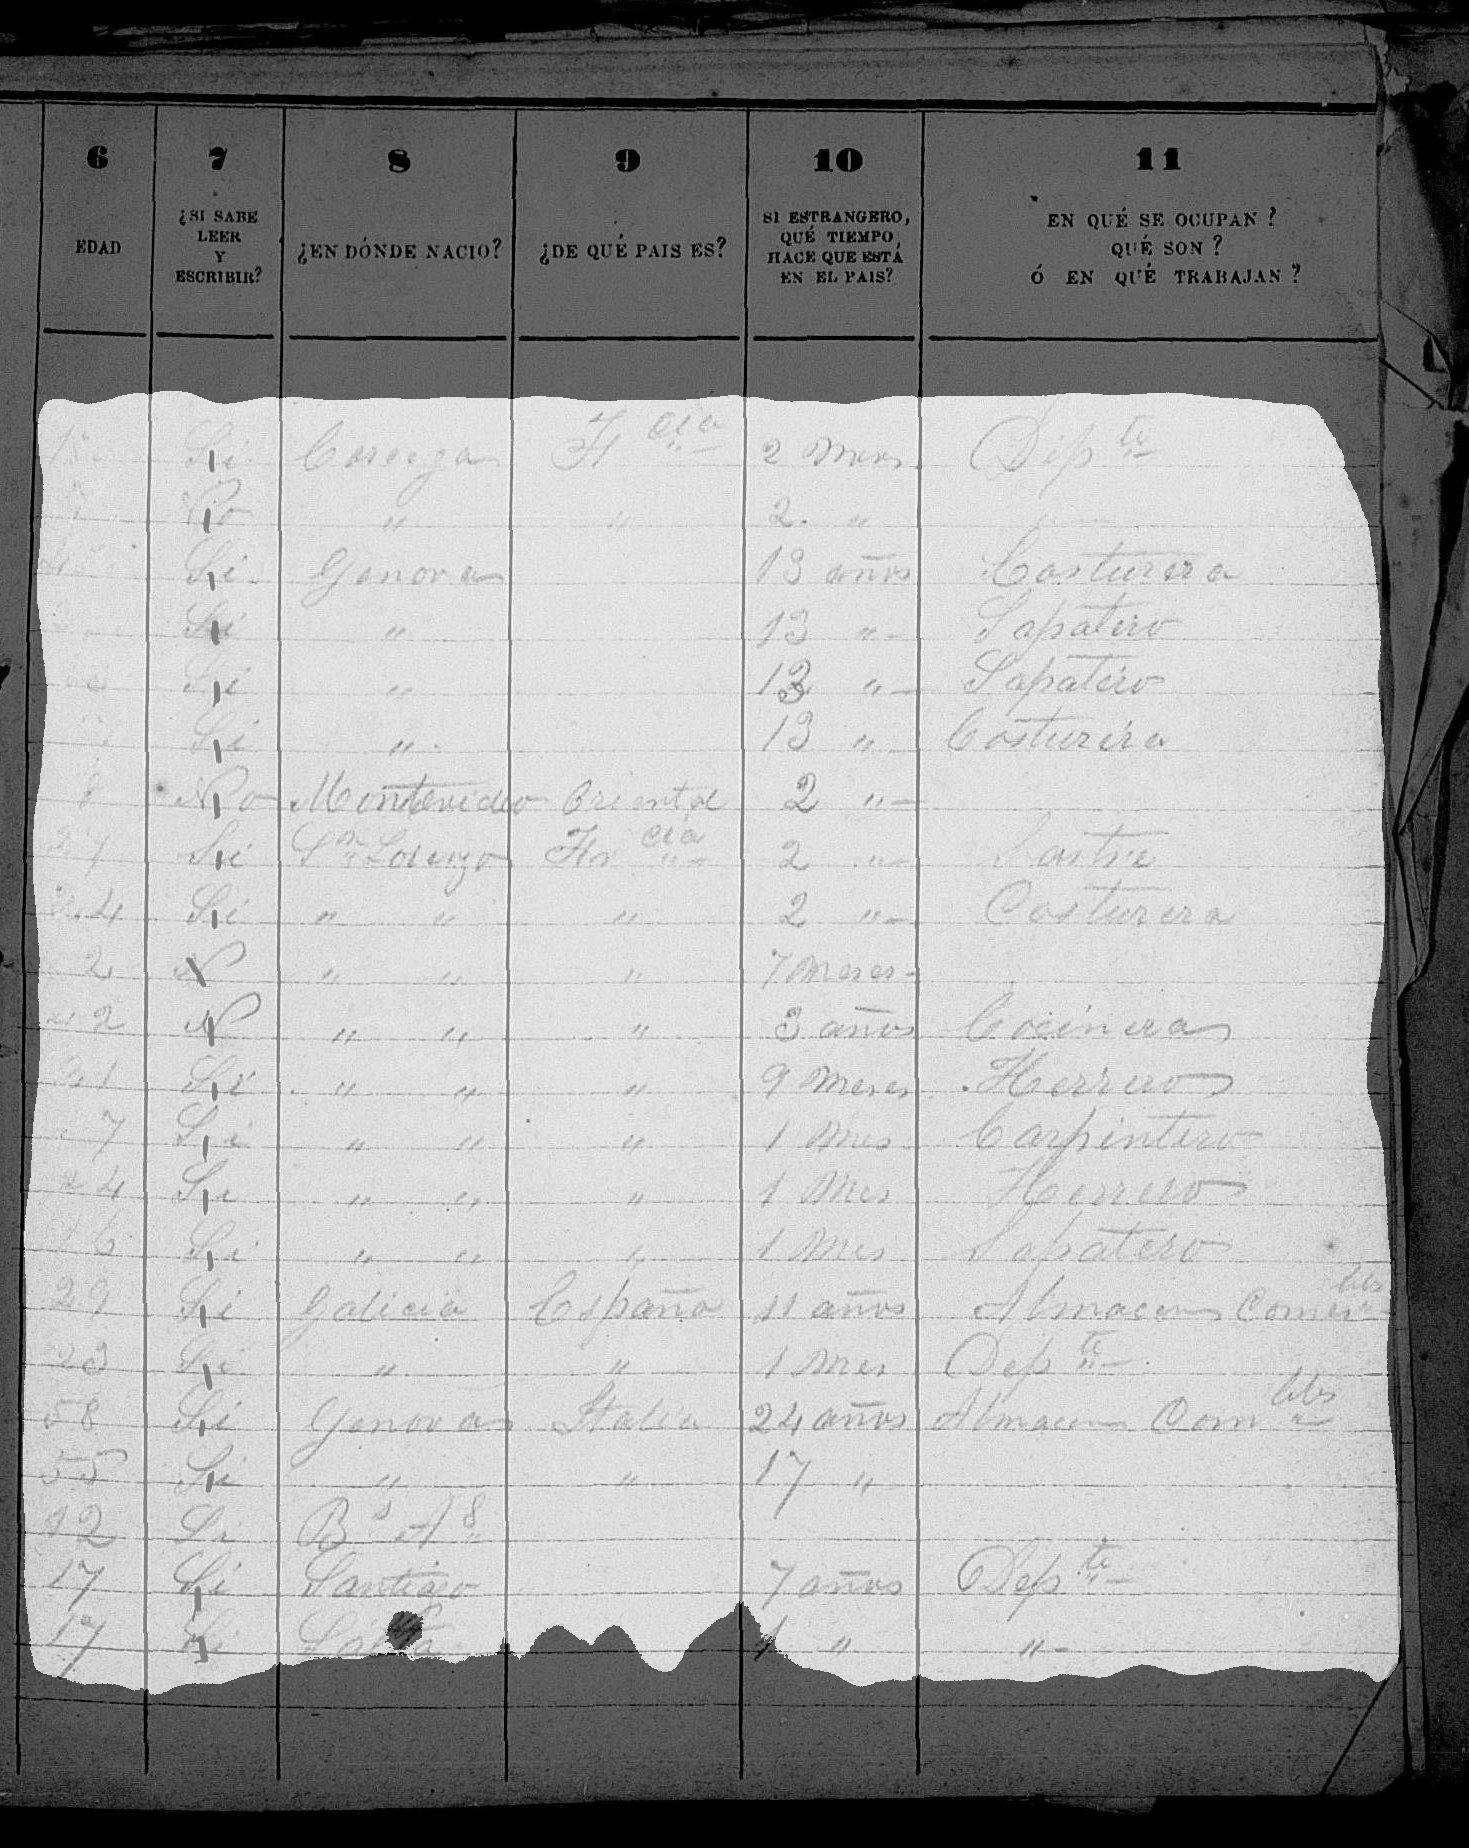 6 7 8 9 10 11
EDAD ¿SI SABE LEER Y ESCRIBIR? ¿EN DÓNDE NACIO? ¿DE QUÉ PAIS ES? SI ESTRANGERO, QUÉ TIEMPO HACE QUE ESTÁ EN EL PAIS? EN QUÉ SE OCUPAN? QUÉ SON? Ó EN QUÉ TRABAJAN?
Si Corcega Fr cia 2 Mess Dep te
No " " 2 "
Si Genova 13 años Costurera
Si " 13 " Sapatero
Si " 13 " Sapatero
Si " 13 " Costurera
No Montevideo Oriental 2 "
27 Si Sn Lorenzo Fr cia 2 " Sastre
24 Si " " " 2 " Costurera
2 N " " " 7 Meses
42 N " " " 3 años Cocinera
Si " " " 9 Meses Herrero
Si " " " 1 Mes Carpintero
24 Si " " " 1 Mes Herrero
16 Si " " " 1 Mes Sapatero
29 Si Galicia España 11 años Almacen Comes bles
23 Si " " 1 Mes Dep te
58 Si Genova Italia 24 años Almacen Com bles
55 Si " " 17 "
12 Si Bs As
17 Si Santiago 7 años Dep te
17 Si Salta 1 " "